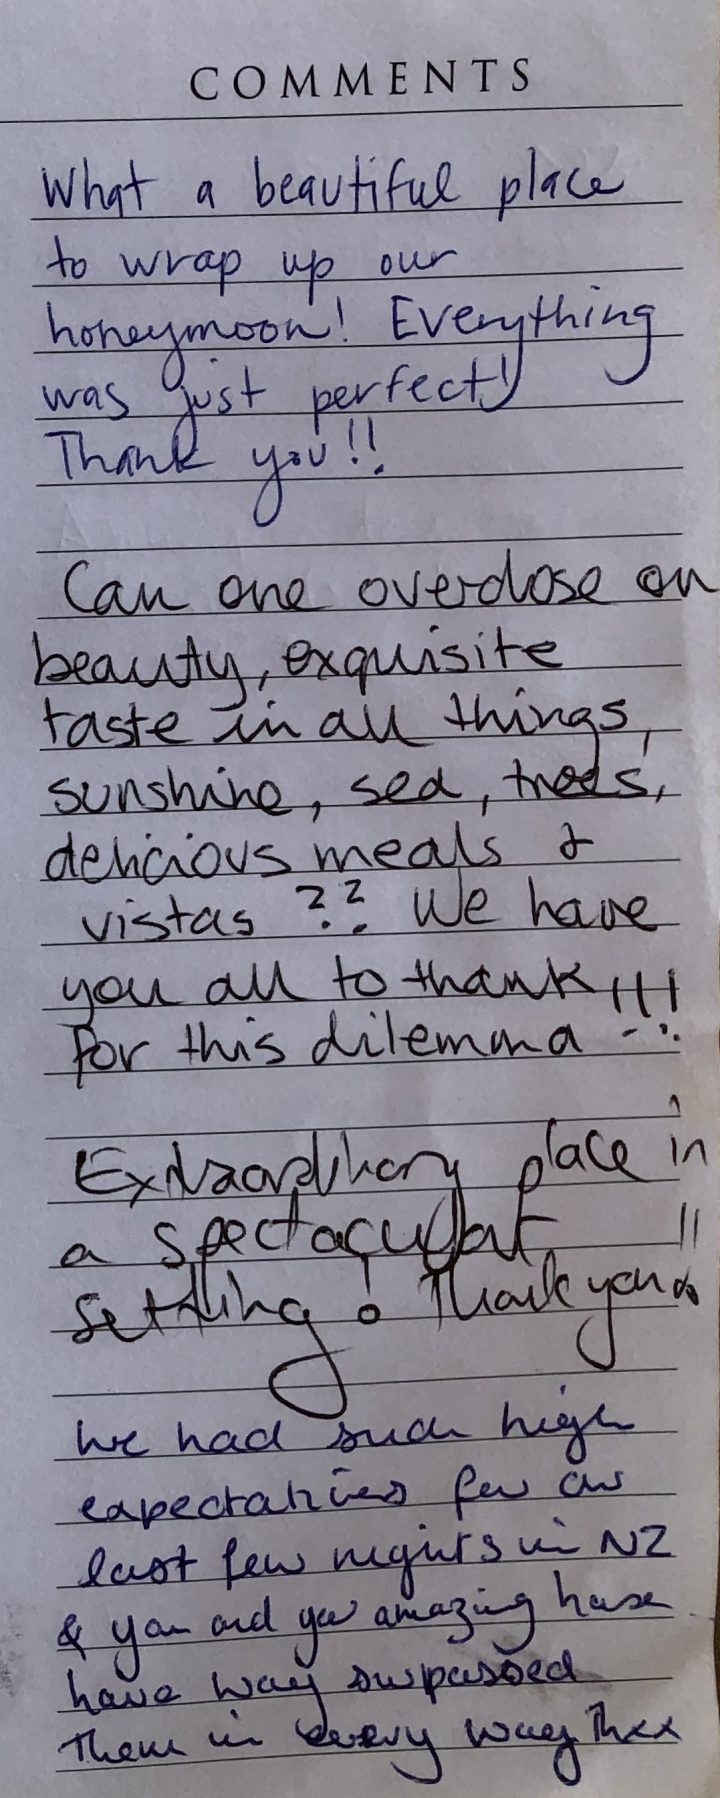 COMMENTS
What a beautiful place
to wrap up our
honeymoon! Everything
was just perfect!
Thank you!!
Can one overdose on
beauty, exquisite
taste in all things,
sunshine, sea, trees,
delicious meals &
vistas ?? We have
you all to thank
for this dilemma !!!
Extraordinary place in
a spectacular
setting! Thank you!!
We had such high
expectations for our
last few nights in NZ
& you and your amazing house
have way surpassed
them in every way Thxx